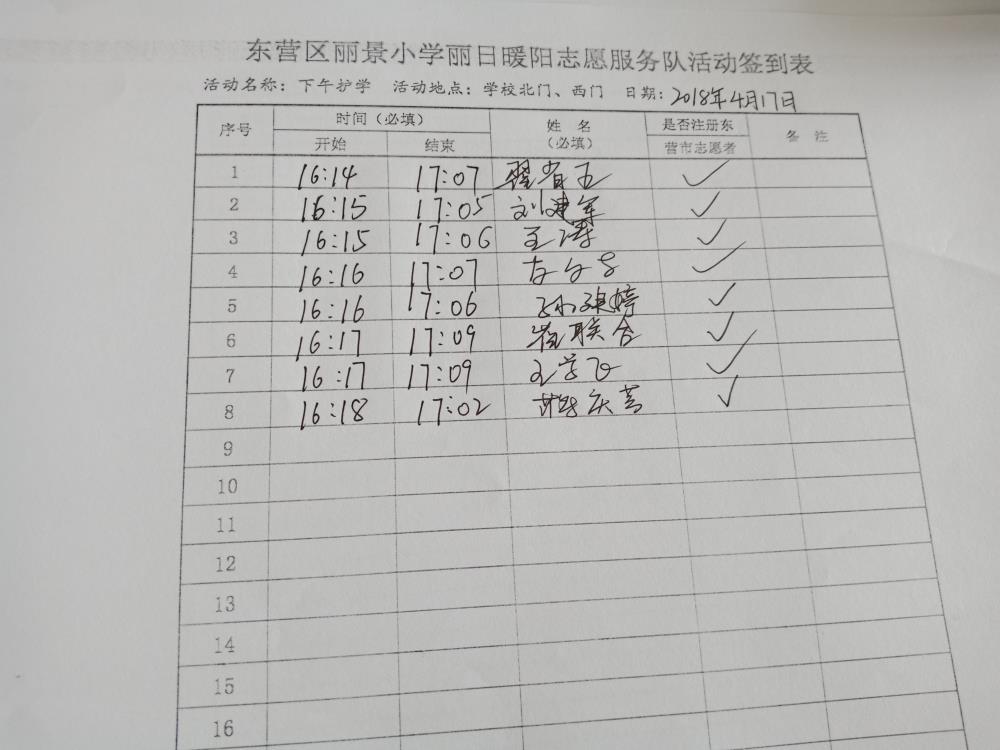 东营区丽景小学丽日暖阳志愿服务队活动签到表
活动名称：下午护学 活动地点：学校北门、西门 日期：2018年4月17日
序号 时间（必填） 姓名 是否注册东 备注
开始 结束 （必填） 营市志愿者
1 16:14 17:07 翟省五 ✓
2 16:15 17:05 刘建军 ✓
3 16:15 17:06 王涛 ✓
4 16:16 17:07 ✓
5 16:16 17:06 婷 ✓
6 16:17 17:09 崔联合 ✓
7 16:17 17:09 王学飞 ✓
8 16:18 17:02 ✓
9
10
11
12
13
14
15
16